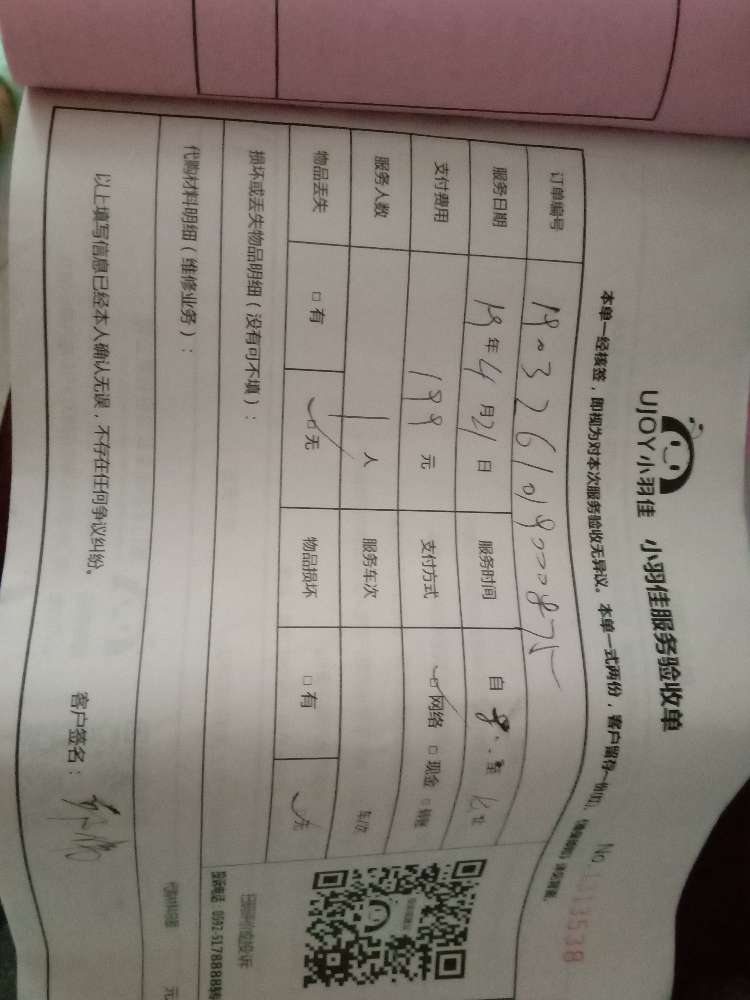 UJOY小羽佳 小羽佳服务验收单
本单一经核签，即视为对本次服务验收无异议。本单一式两份，客户留存一份
No 1313538
订单编号
服务日期 19年4月21日 服务时间 自 8 至
支付费用 199元 支付方式 网络 现金
服务人数 1人 服务车次 车次
物品丢失 有 无 物品损坏 有 无
损坏或丢失物品明细（没有可不填）：
扫码评价或投诉
投诉电话 0592-5178888转
代购材料明细（维修业务）：
元
以上填写信息已经本人确认无误，不存在任何争议纠纷。
客户签名：